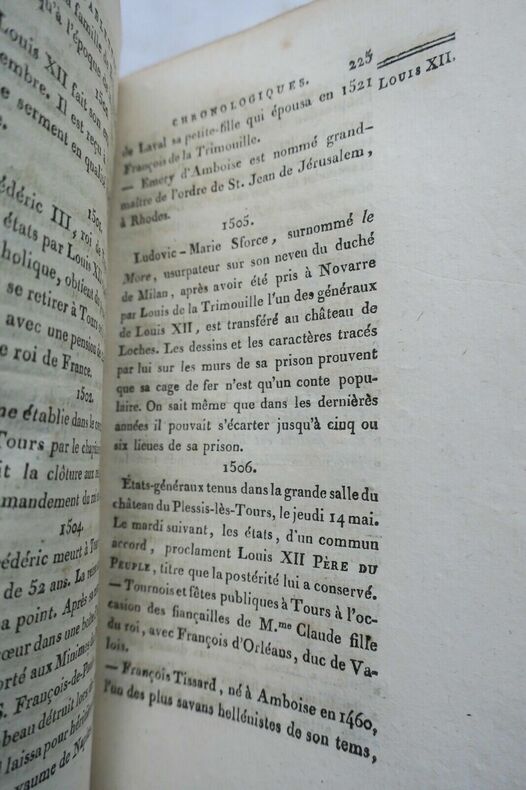 Louis XII fait son
serment en qualité
III, roi de
états par Louis XII
obtient
se retirer à Tours
avec une pension
roi de France.
1502.
établie dans le
Tours par le
la clôture aux
mandement du
1504.
meurt à
de 52 ans. La
a point. Après sa
cœur dans une
aux Minimes
S. François-de-
beau détruit lors
laissa pour
yaume de
CHRONOLOGIQUES. 225
de Laval sa petite-fille qui épousa en 1521
LOUIS XII.
François de la Trimouille.
— Emery d'Amboise est nommé grand-
maître de l'ordre de St. Jean de Jérusalem,
à Rhodes.
1505.
Ludovic-Marie Sforce, surnommé le
More, usurpateur sur son neveu du duché
de Milan, après avoir été pris à Novarre
par Louis de la Trimouille l'un des généraux
de Louis XII, est transféré au château de
Loches. Les dessins et les caractères tracés
par lui sur les murs de sa prison prouvent
que sa cage de fer n'est qu'un conte popu-
laire. On sait même que dans les dernières
années il pouvait s'écarter jusqu'à cinq ou
six lieues de sa prison.
1506.
États-généraux tenus dans la grande salle du
château du Plessis-lès-Tours, le jeudi 14 mai.
Le mardi suivant, les états, d'un commun
accord, proclament Louis XII PÈRE DU
PEUPLE, titre que la postérité lui a conservé.
— Tournois et fêtes publiques à Tours à l'oc-
casion des fiançailles de M.me Claude fille
du roi, avec François d'Orléans, duc de Va-
lois.
— François Tissard, né à Amboise en 1460,
l'un des plus savans hellénistes de son tems,